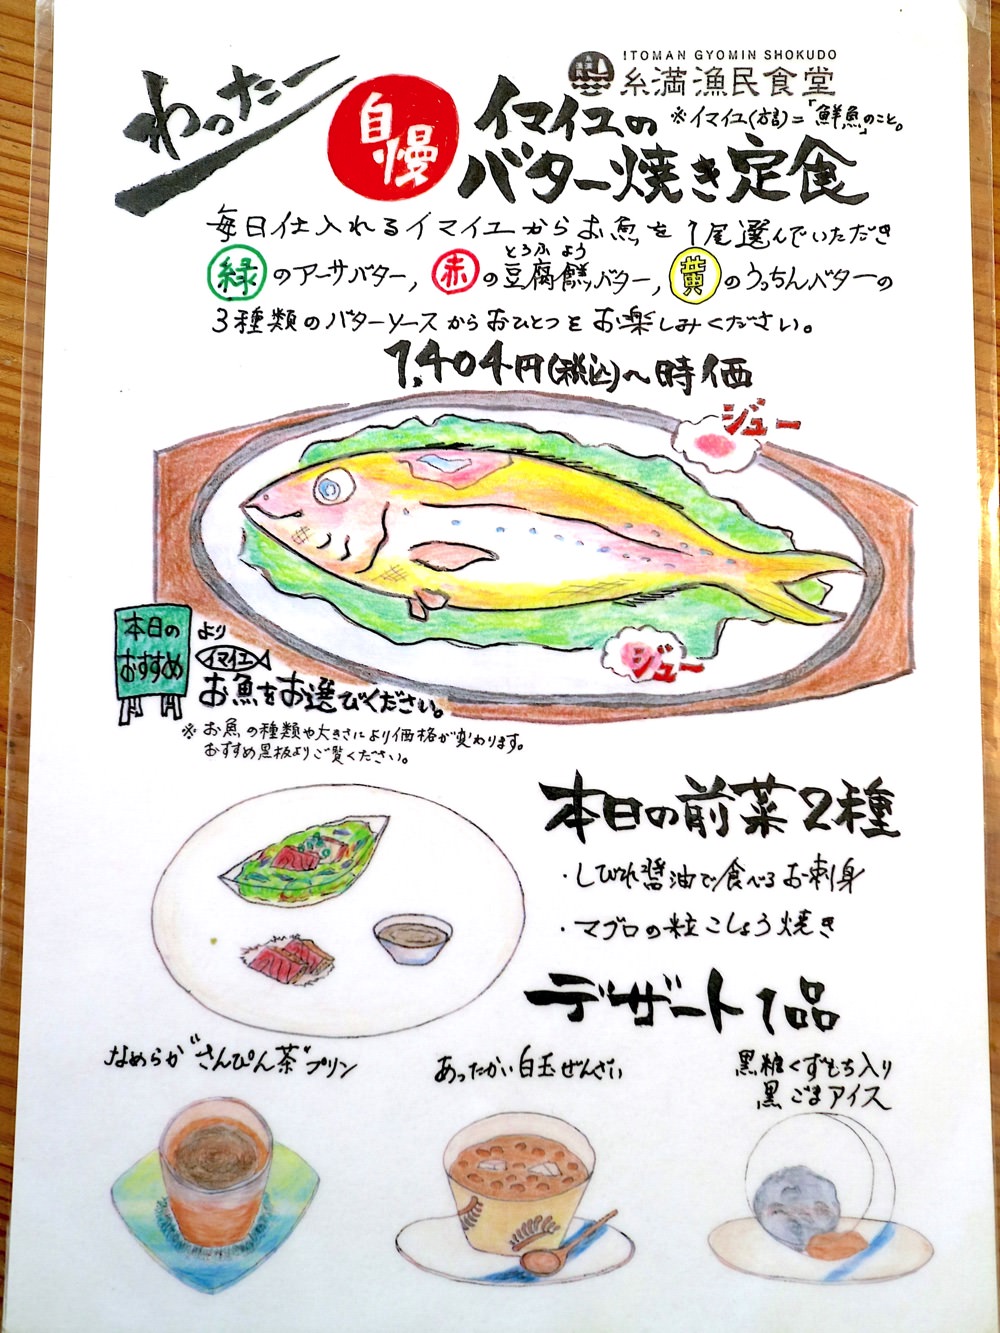 わったー
自慢
ITOMAN GYOMIN SHOKUDO
糸満漁民食堂
イマイユの
※イマイユ(方言)=「鮮魚」のこと。
バター焼き定食
毎日仕入れるイマイユからお魚を1尾選んでいただき
とうふ よう
緑のアーサバター, 赤の豆腐餻バター, 黄のうっちんバターの
3種類のバターソースからおひとつをお楽しみください。
1,404円(税込)〜時価
ジュー
ジュー
本日の
おすすめ
より
イマイユ
お魚をお選びください。
※お魚の種類や大きさにより価格が変わります。
おすすめ黒板よりご覧ください。
本日の前菜2種
・しびれ醤油で食べるお刺身
・マグロの粒こしょう焼き
デザート1品
なめらか"さんぴん茶"プリン
あったかい白玉ぜんざい
黒糖くずもち入り
黒ごまアイス